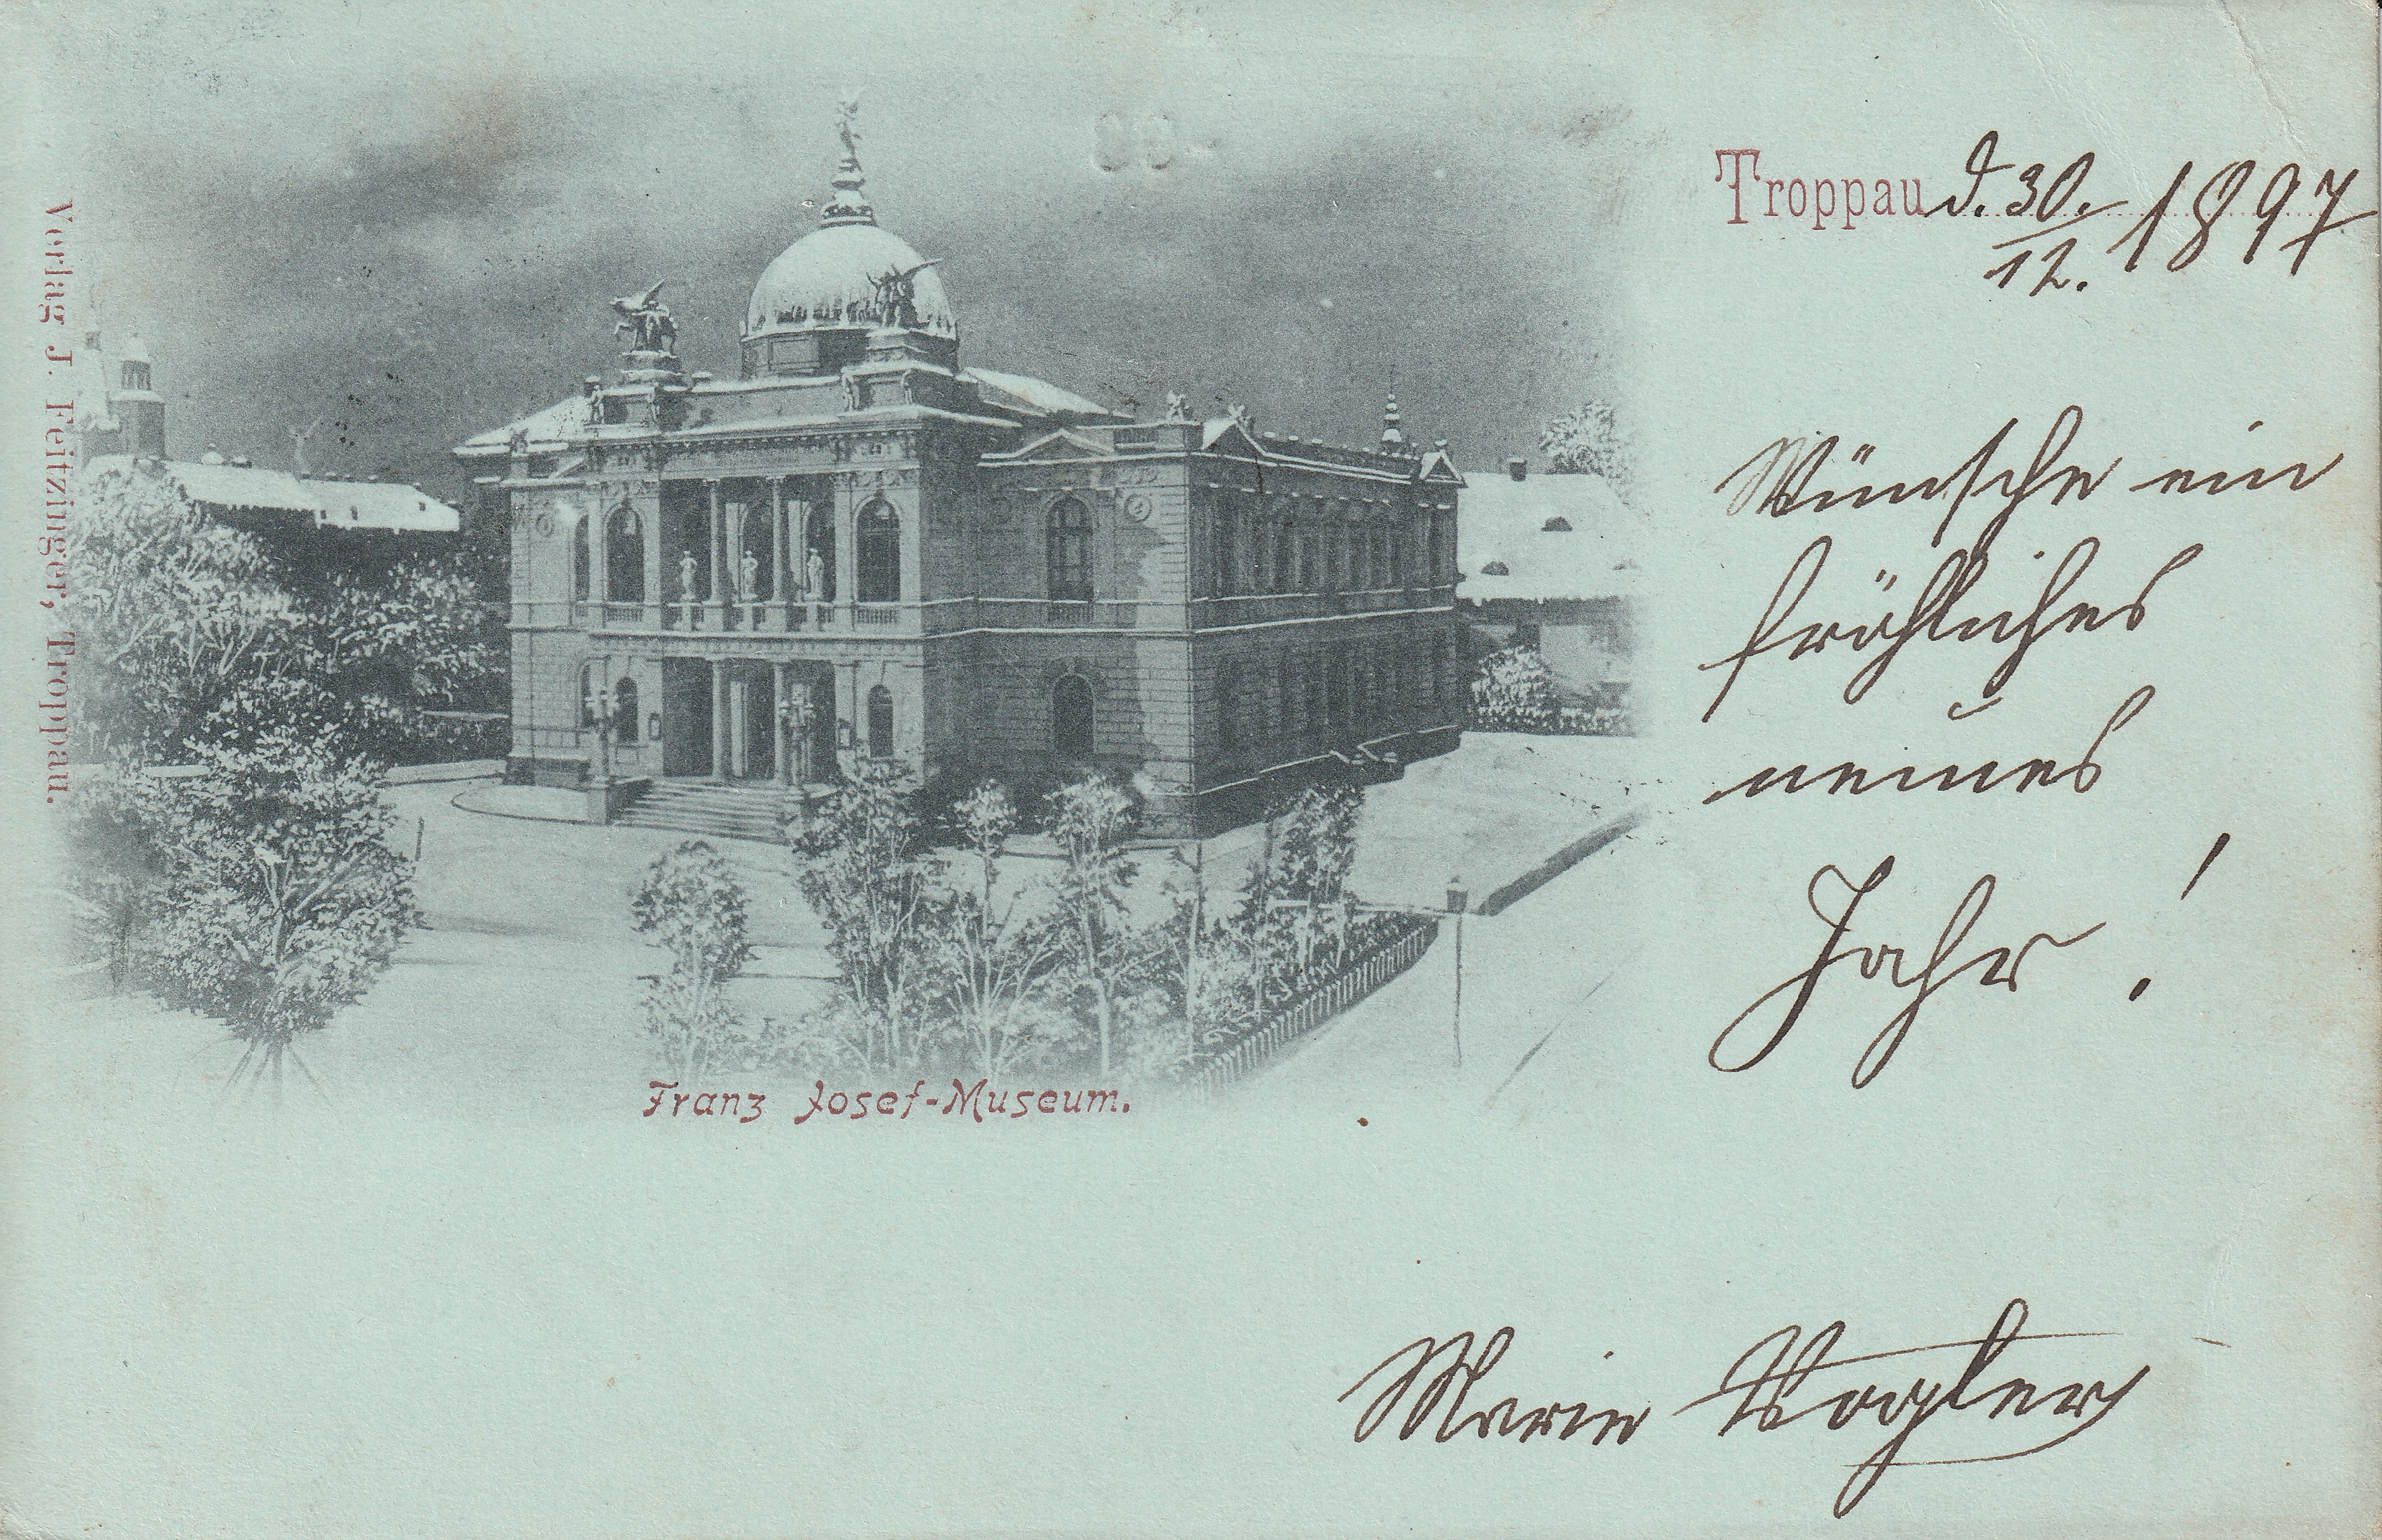 Verlag J. Feitzinger, Troppau.
Troppau d. 30./12. 1897
Wünsche ein
fröhliches
neues
Jahr!
Franz Josef-Museum.
Marie Vogler